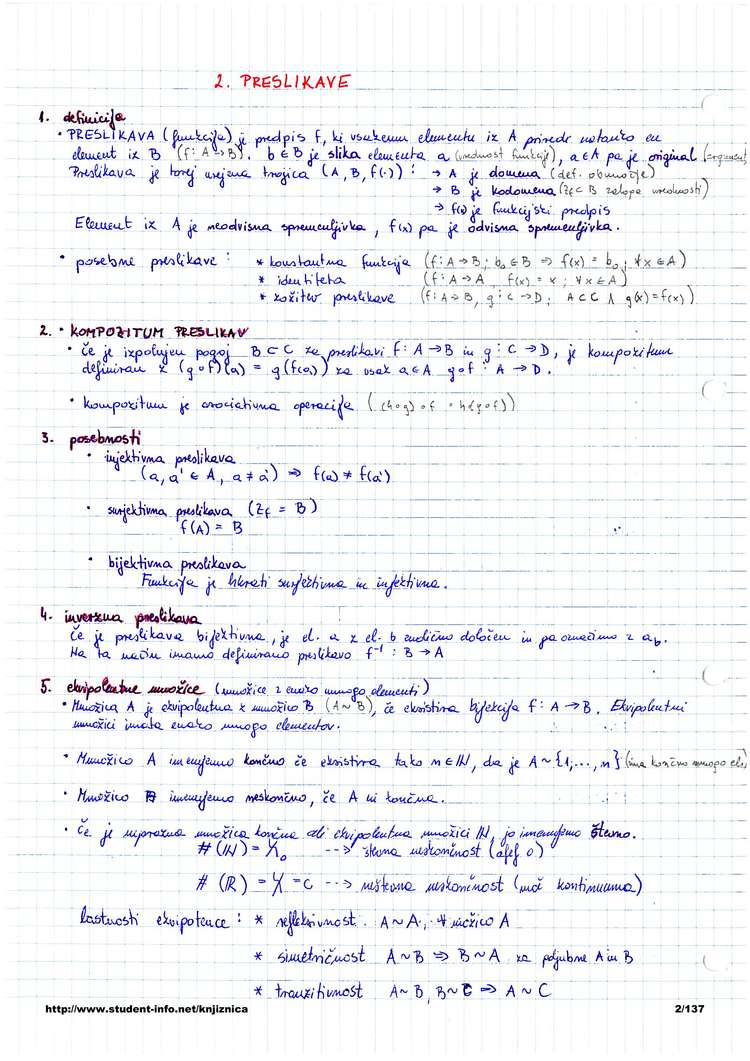 2. PRESLIKAVE
1. definicija
• PRESLIKAVA (funkcija) je predpis f, ki vsakemu elementu iz A priredi natanko en
element iz B (f: A→B). b∈B je slika elementa a (vrednost funkcije), a∈A pa je original (argument)
Preslikava je torej urejena trojica (A, B, f(·)) : → A je domena (def. območje)
→ B je kodomena (Zf ⊂ B zaloga vrednosti)
→ f(x) je funkcijski predpis
Element iz A je neodvisna spremenljivka, f(x) pa je odvisna spremenljivka.
• posebne preslikave : * konstantna funkcija (f: A→B; b₀∈B ⇒ f(x) = b₀; ∀x∈A)
* identiteta (f: A→A f(x) = x ; ∀x∈A)
* zožitev preslikave (f: A→B, g: C→D; A⊂C ∧ g(x)=f(x))
2. • KOMPOZITUM PRESLIKAV
• Če je izpolnjen pogoj B⊂C za preslikavi f: A→B in g: C→D, je kompozitum
definiran z (g∘f)(a) = g(f(a)) za vsak a∈A g∘f : A→D.
• kompozitum je asociativna operacija ((h∘g)∘f = h(g∘f))
3. posebnosti
• injektivna preslikava
(a, a' ∈ A, a ≠ a') ⇒ f(a) ≠ f(a')
• surjektivna preslikava (Zf = B)
f(A) = B
• bijektivna preslikava
Funkcija je hkrati surjektivna in injektivna.
4. inverzna preslikava
Če je preslikava bijektivna, je el. a z el. b enolično določen in ga označimo z a_b.
Na ta način imamo definirano preslikavo f⁻¹ : B→A
5. ekvipolentne množice (množice z enako mnogo elementi)
• Množica A je ekvipolentna z množico B (A∼B), če eksistira bijekcija f: A→B. Ekvipolentni
množici imata enako mnogo elementov.
• Množico A imenujemo končno če eksistira tako n∈ℕ, da je A∼{1,...,n} (ima končno mnogo el.)
• Množico A imenujemo neskončno, če A ni končna.
• Če je neprazna množica končna ali ekvipolentna množici ℕ, jo imenujemo števno.
#(ℕ) = ℵ₀ --> števna neskončnost (alef 0)
#(ℝ) = ℵ = c --> neštevna neskončnost (moč kontinuuma)
lastnosti ekvipotence : * refleksivnost A∼A, ∀ množico A
* simetričnost A∼B ⇒ B∼A za poljubne A in B
* tranzitivnost A∼B, B∼C ⇒ A∼C
http://www.student-info.net/knjiznica 2/137